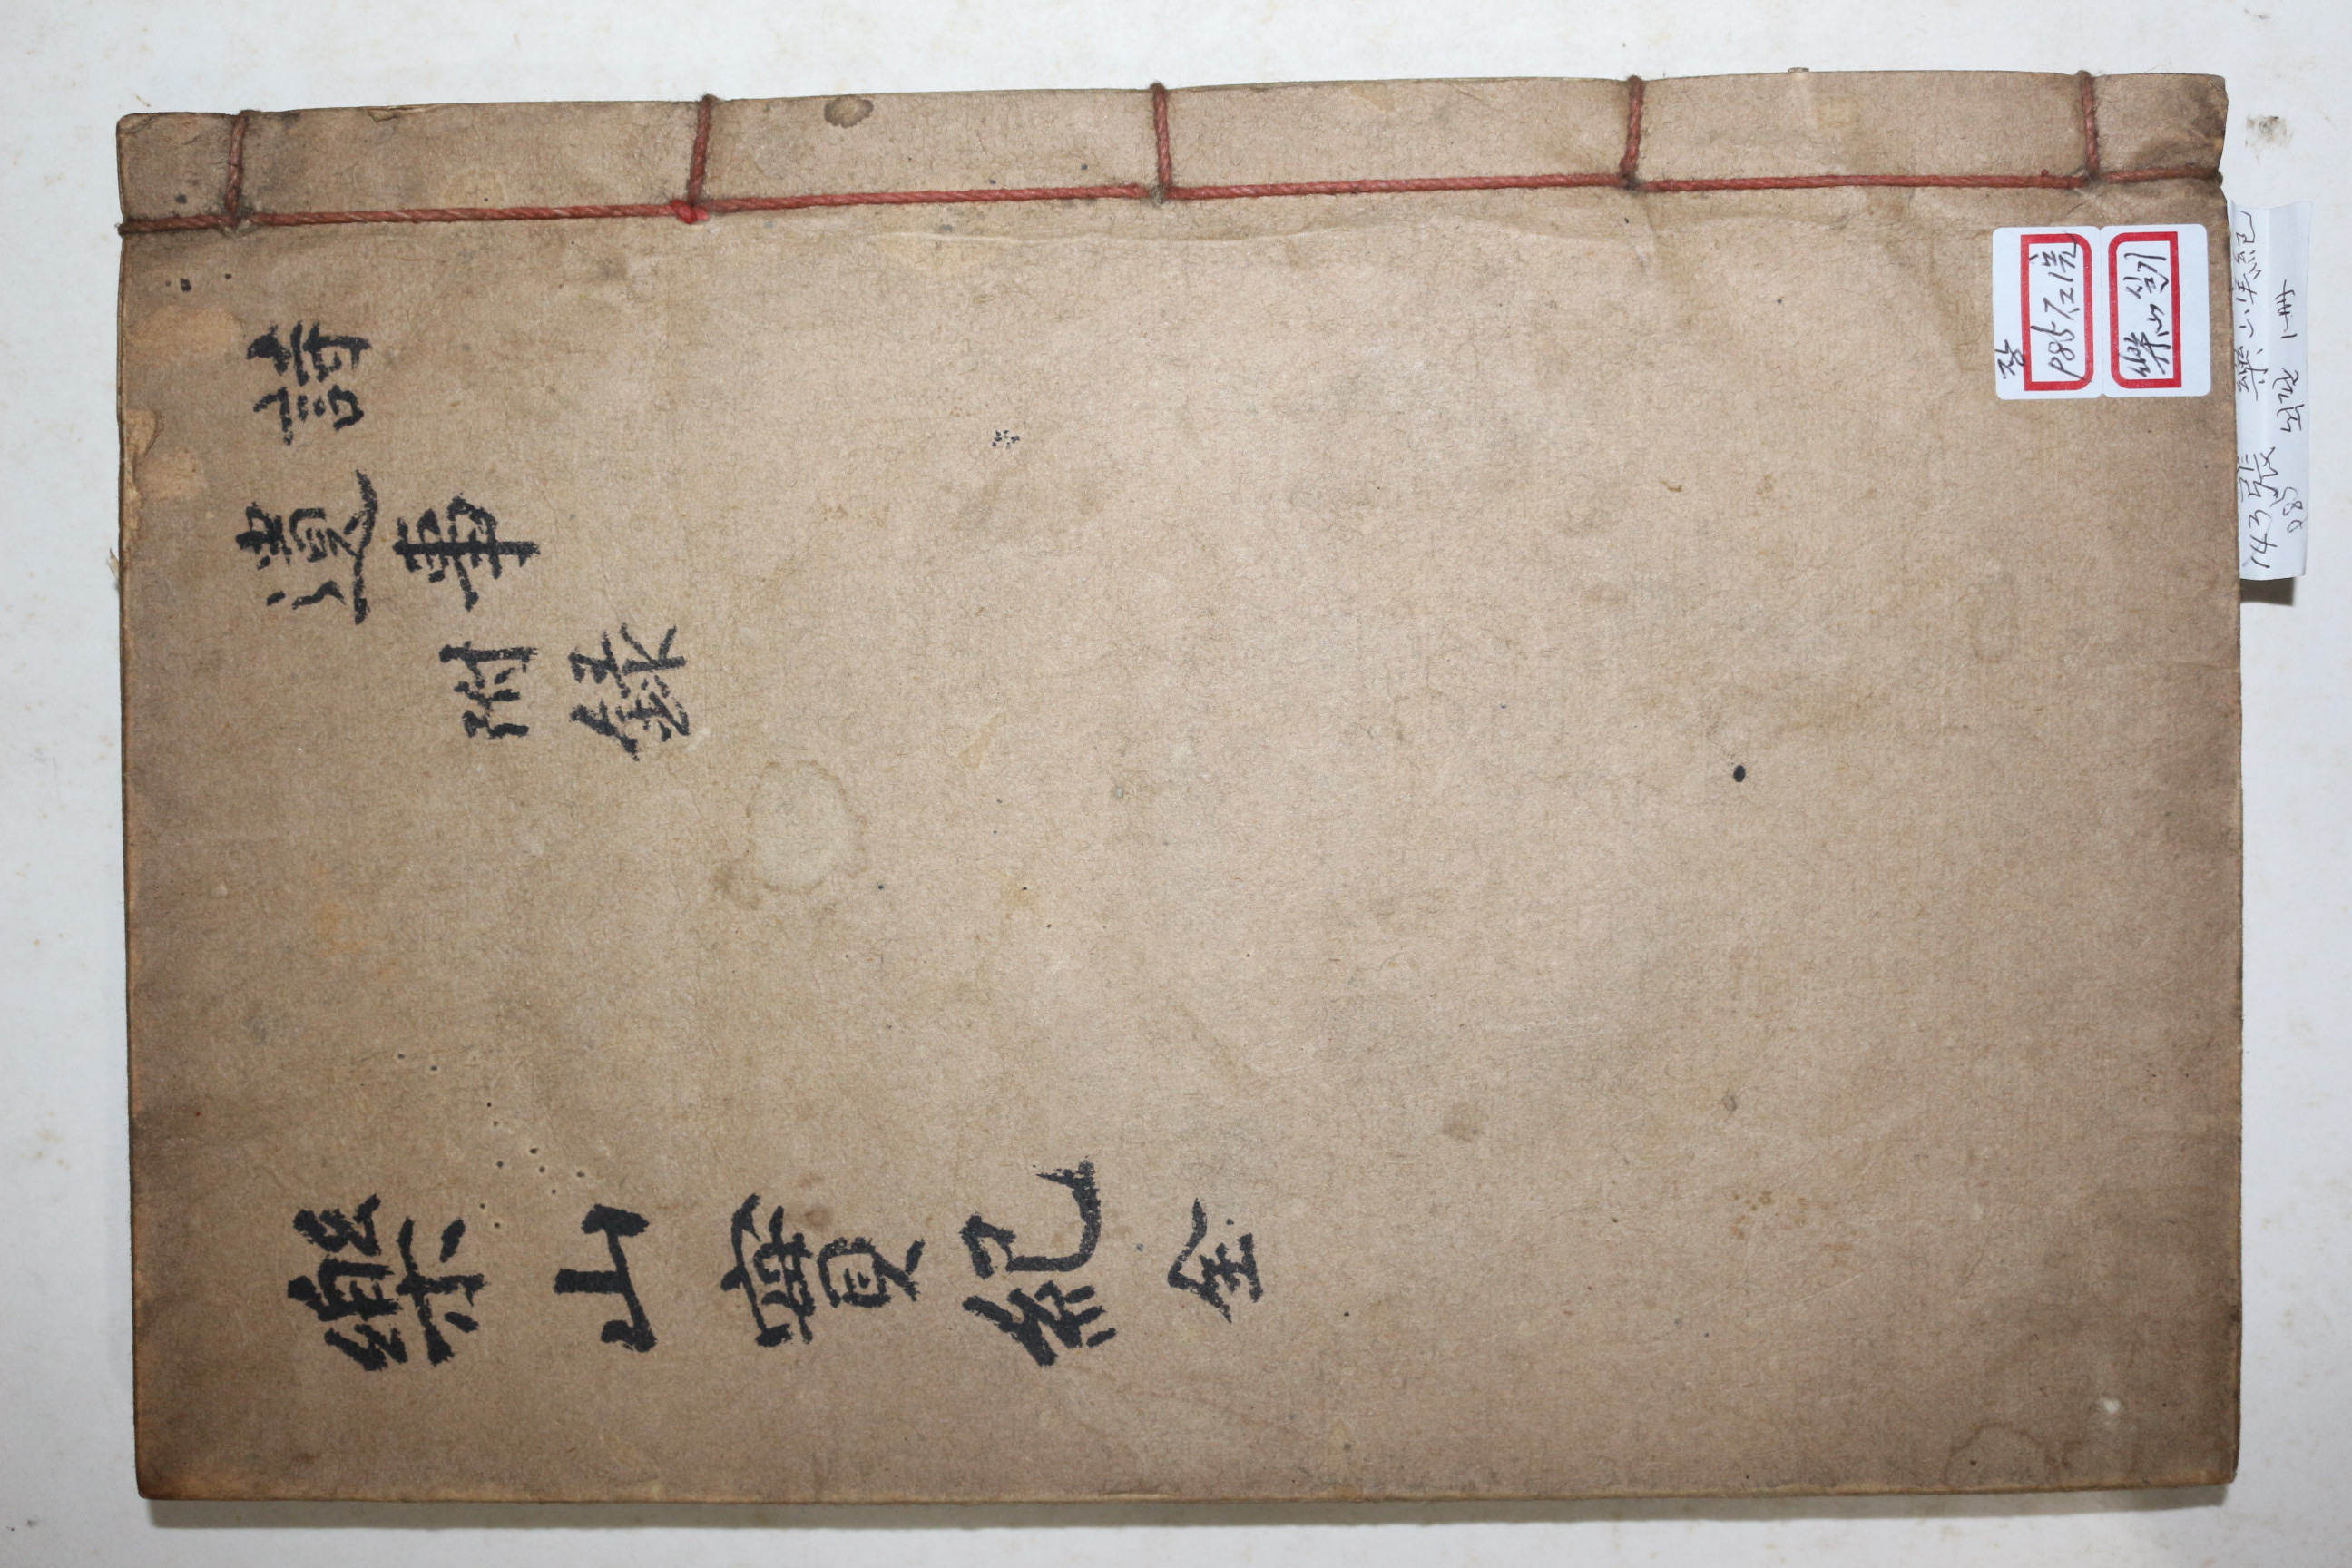 詩
遺事
附録
樂山實紀 全
장
985石1完
樂山실기
143張 樂山実紀
985 石版 1冊